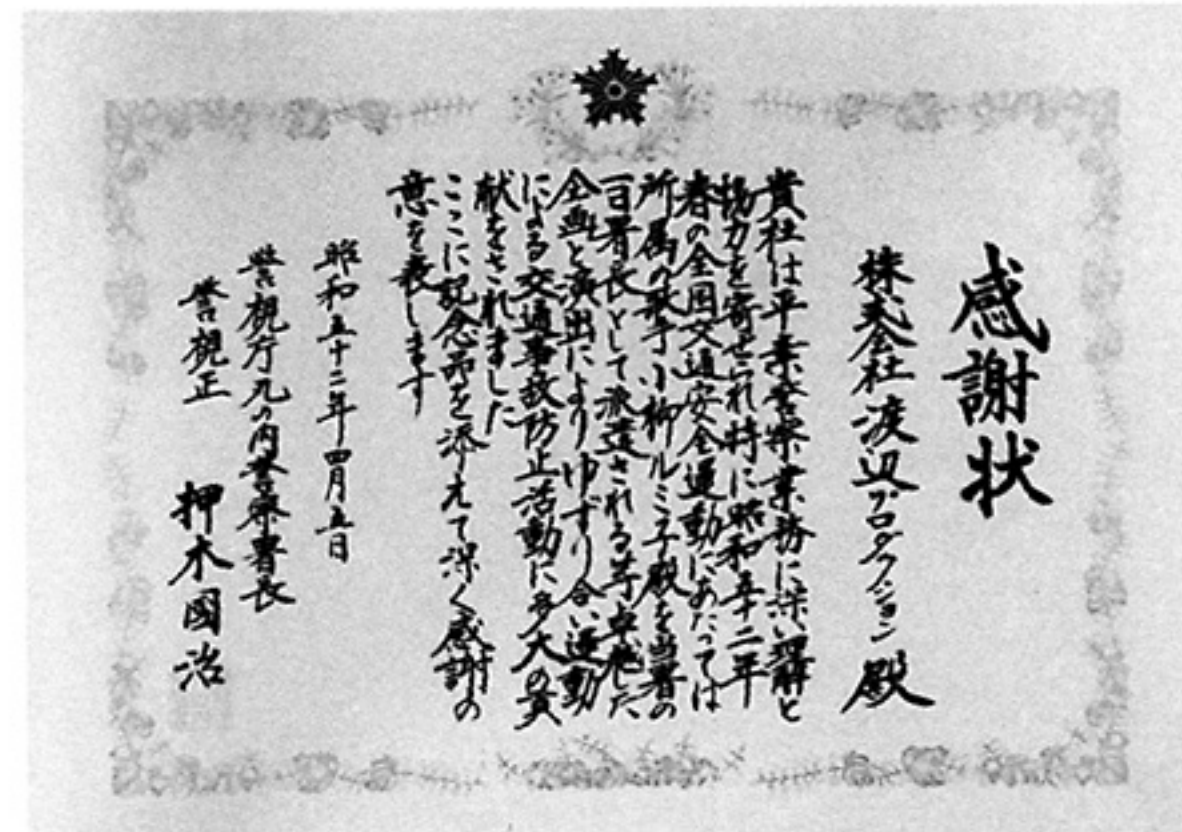 感謝状
株式会社渡辺プロダクション殿
貴社は平素警察業務に深い理解と
協力を寄せられ特に昭和五十二年
春の全国交通安全運動にあたっては
所属の歌手小柳ルミ子殿を当署の
一日署長として派遣される等卓越した
企画と演出によりゆずり合い運動
による交通事故防止活動に多大の貢
献をされました
ここに記念品を添えて深く感謝の
意を表します
昭和五十二年四月五日
警視庁丸の内警察署長
警視正 押木國治